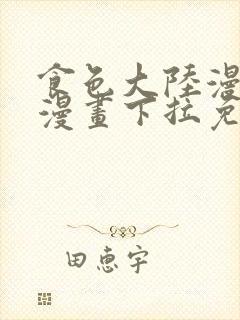 食色大陸漫
漫畫下拉免
田惠宇